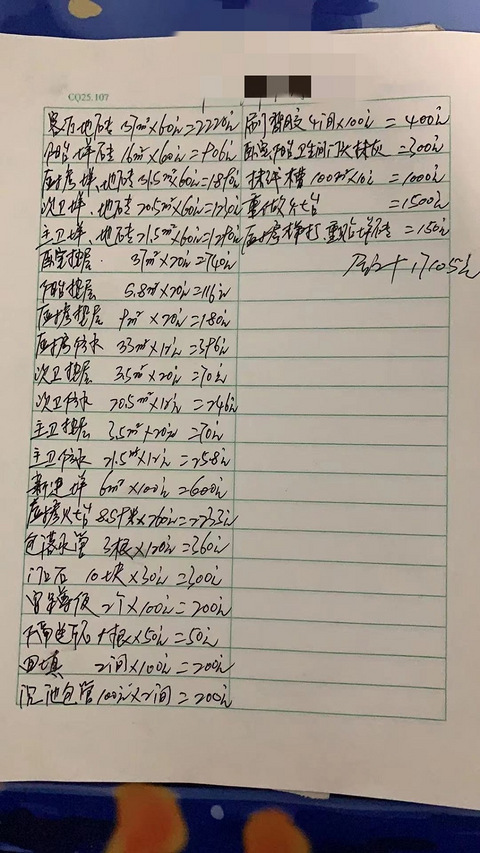 CQ25.107
客厅地石砖 37m²×60元=2220元
阳台墙砖 16m²×60元=906元
厨房墙、地砖 31.5m²×60元=1890元
次卫墙、地砖 20.5m²×60元=1230元
主卫墙、地砖 21.5m²×60元=1290元
卧室垫层 37m²×20元=740元
阳台垫层 5.8m²×20元=116元
厨房垫层 9m²×20元=180元
厨房防水 33m²×12元=396元
次卫垫层 3.5m²×20元=70元
次卫防水 20.5m²×12元=246元
主卫垫层 3.5m²×20元=70元
主卫防水 21.5m²×12元=258元
新建墙 6m²×100元=600元
厨房灶台 8.59米×260元=2233元
包落水管 3根×120元=360元
门口石 10块×30元=300元
安蹲便 2个×100元=200元
1根×50元=50元
回填 2间×100元=200元
沉池包管 100元×2间=200元
刷背胶 4间×100元=400元
卧室阳台卫生间门收抹灰=300元
抹线槽 100m²×10元=1000元
重做灶台=1500元
厨房墙打重贴墙砖=150元
总计17105元